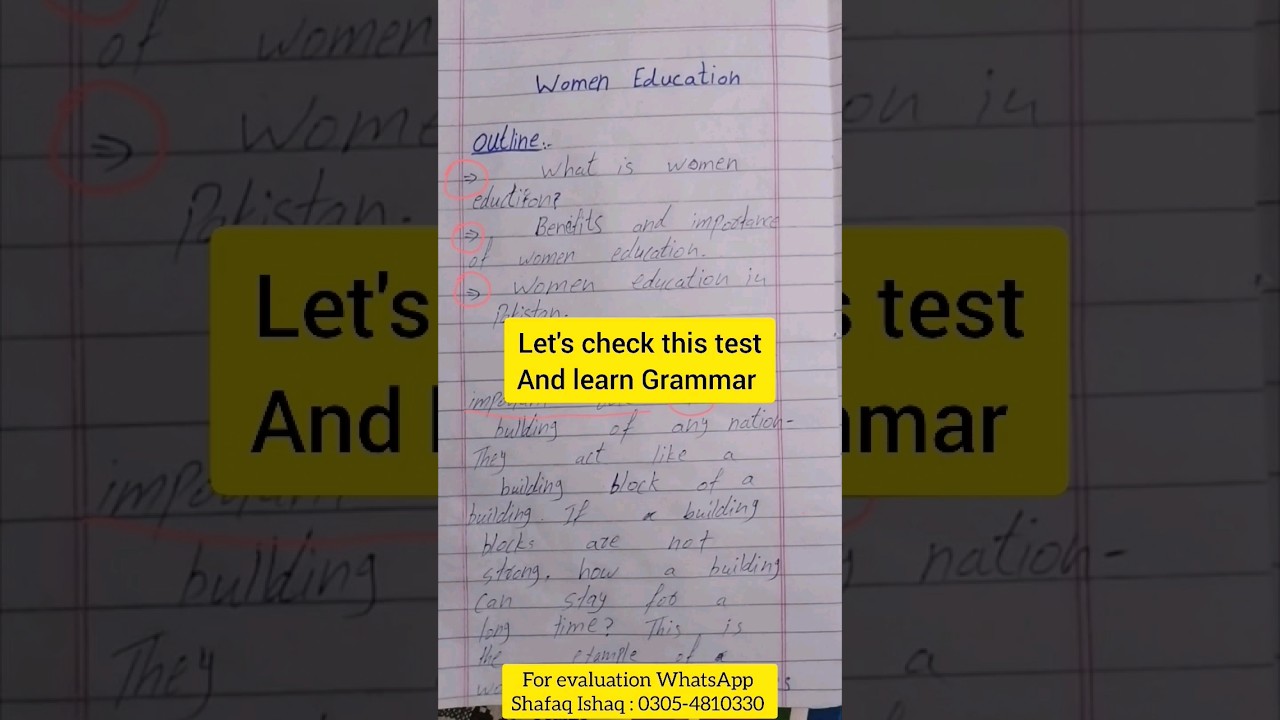 Women Education
Outline:-
⇒ What is women
eductifon?
⇒ Benefits and importance
of women education.
⇒ Women education in
Pakistan.
Let's check this test
And learn Grammar
important
building of any nation-
They act like a
building block of a
building. If a building
blocks are not
strong. how a building
can stay for a
long time? This is
the example of a
For evaluation WhatsApp
Shafaq Ishaq : 0305-4810330
of women
⇒ Wome
on in
Pakistan.
Let's
s test
And l
mmar
important
building
nation-
They
a